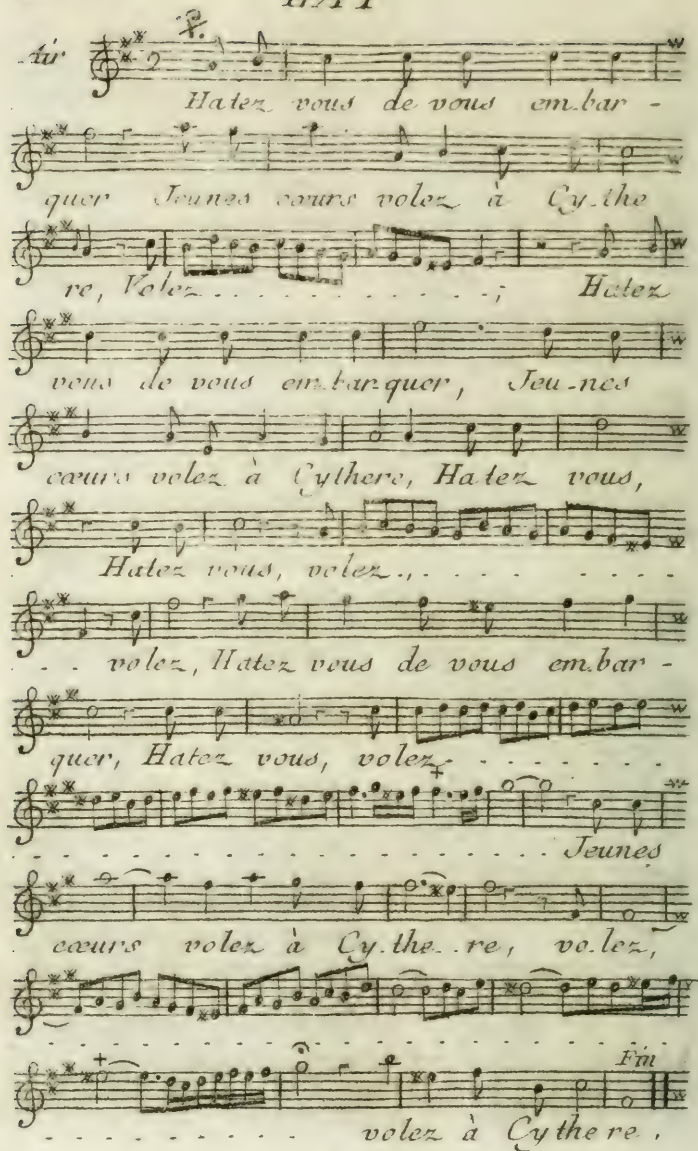 Air
Hatez vous de vous em.bar -
quer Jeunes cœurs volez à Cy-the
re, Volez . . . . . . . . . . . ; Hatez
vous de vous em.barquer, Jeu-nes
cœurs volez à Cythere, Hatez vous,
Hatez vous, volez . , . . . . . .
. . volez, Hatez vous de vous em.bar -
quer, Hatez vous, volez . . . . . . .
. . . . . . . . . . . . . . . . . . Jeunes
cœurs volez à Cy.the..re, vo.lez,
. . . . . . . . . . . . . . . . . . . .
Fin
. . . . . . . . . volez à Cythere.